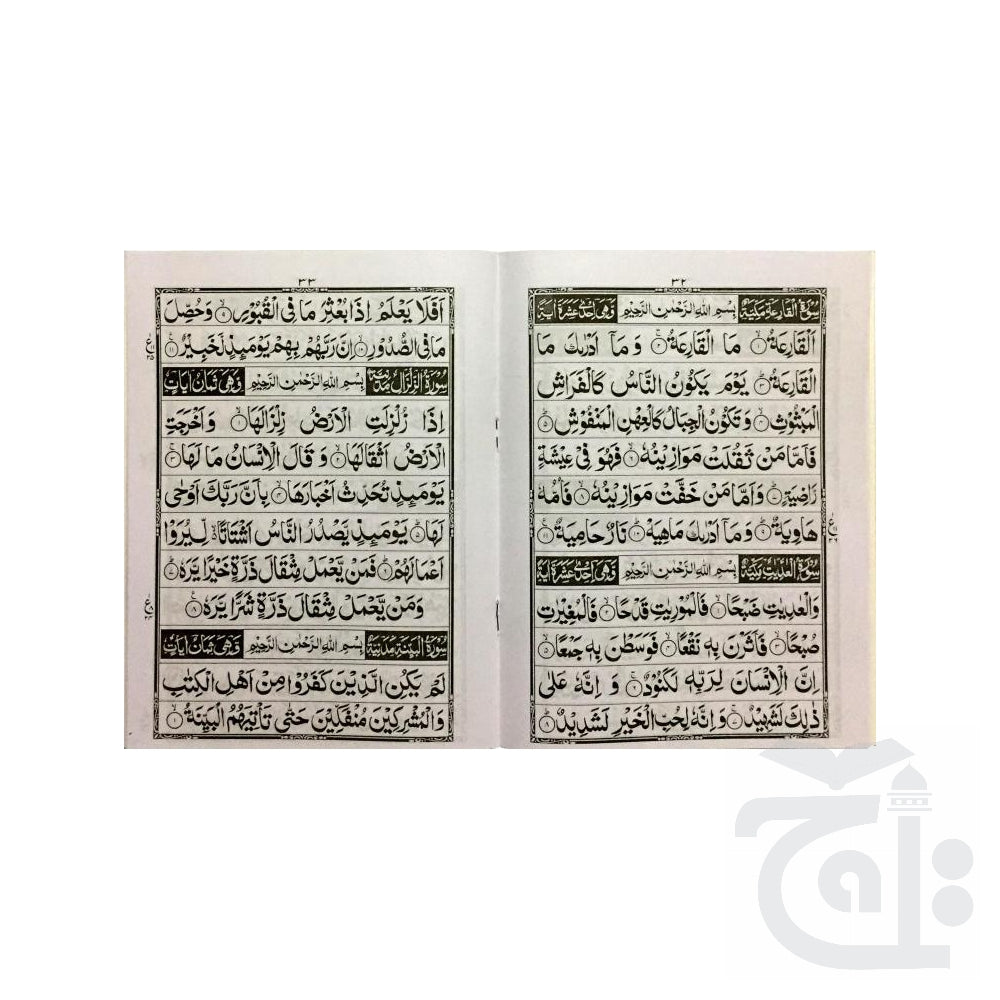 ٣٢
سُوۡرَةُ الۡقَارِعَةِ مَكِّيَّةٌ بِسۡمِ اللهِ الرَّحۡمٰنِ الرَّحِيۡمِ وَهِىَ اِحۡدٰى عَشَرَةَ اٰيَةً
اَلۡقَارِعَةُ ۙ‏﴿۱﴾ مَا الۡقَارِعَةُ​ ۚ‏﴿۲﴾ وَمَاۤ اَدۡرٰٮكَ مَا
الۡقَارِعَةُ ؕ‏﴿۳﴾ يَوۡمَ يَكُوۡنُ النَّاسُ كَالۡفَرَاشِ
الۡمَبۡثُوۡثِۙ‏﴿۴﴾ وَتَكُوۡنُ الۡجِبَالُ كَالۡعِهۡنِ الۡمَنۡفُوۡشِؕ‏﴿۵﴾
فَاَمَّا مَنۡ ثَقُلَتۡ مَوَازِيۡنُهٗ ۙ‏﴿۶﴾ فَهُوَ فِىۡ عِيۡشَةٍ
رَّاضِيَةٍ ؕ‏﴿۷﴾ وَاَمَّا مَنۡ خَفَّتۡ مَوَازِيۡنُهٗ ۙ‏﴿۸﴾ فَاُمُّهٗ
هَاوِيَةٌ ؕ‏﴿۹﴾ وَمَاۤ اَدۡرٰٮكَ مَا هِيَهۡ ؕ‏﴿۱۰﴾ نَارٌ حَامِيَةٌ‏﴿۱۱﴾
سُوۡرَةُ الۡعٰدِيٰتِ مَكِّيَّةٌ بِسۡمِ اللهِ الرَّحۡمٰنِ الرَّحِيۡمِ وَهِىَ اِحۡدٰى عَشَرَةَ اٰيَةً
وَالۡعٰدِيٰتِ ضَبۡحًا ۙ‏﴿۱﴾ فَالۡمُوۡرِيٰتِ قَدۡحًا ۙ‏﴿۲﴾ فَالۡمُغِيۡرٰتِ
صُبۡحًا ۙ‏﴿۳﴾ فَاَثَرۡنَ بِهٖ نَقۡعًا ۙ‏﴿۴﴾ فَوَسَطۡنَ بِهٖ جَمۡعًا ۙ‏﴿۵﴾
اِنَّ الۡاِنۡسَانَ لِرَبِّهٖ لَـكَنُوۡدٌ ۚ‏﴿۶﴾ وَاِنَّهٗ عَلٰى
ذٰلِكَ لَشَهِيۡدٌ ۚ‏﴿۷﴾ وَاِنَّهٗ لِحُبِّ الۡخَيۡرِ لَشَدِيۡدٌ ؕ‏﴿۸﴾
٣٣
اَفَلَا يَعۡلَمُ اِذَا بُعۡثِرَ مَا فِى الۡقُبُوۡرِۙ‏﴿۹﴾ وَحُصِّلَ
مَا فِى الصُّدُوۡرِۙ‏﴿۱۰﴾ اِنَّ رَبَّهُمۡ بِهِمۡ يَوۡمَٮِٕذٍ لَّخَبِيۡرٌ‏﴿۱۱﴾
سُوۡرَةُ الزِّلۡزَالِ مَدَنِيَّةٌ بِسۡمِ اللهِ الرَّحۡمٰنِ الرَّحِيۡمِ وَهِىَ ثَمَانُ اٰيَاتٍ
اِذَا زُلۡزِلَتِ الۡاَرۡضُ زِلۡزَالَهَا ۙ‏﴿۱﴾ وَاَخۡرَجَتِ
الۡاَرۡضُ اَثۡقَالَهَا ۙ‏﴿۲﴾ وَقَالَ الۡاِنۡسَانُ مَا لَهَا​ ۚ‏﴿۳﴾
يَوۡمَٮِٕذٍ تُحَدِّثُ اَخۡبَارَهَا ۙ‏﴿۴﴾ بِاَنَّ رَبَّكَ اَوۡحٰى
لَهَا ؕ‏﴿۵﴾ يَوۡمَٮِٕذٍ يَّصۡدُرُ النَّاسُ اَشۡتَاتًا ۙ لِّيُرَوۡا
اَعۡمَالَهُمۡؕ‏﴿۶﴾ فَمَنۡ يَّعۡمَلۡ مِثۡقَالَ ذَرَّةٍ خَيۡرًا يَّرَهٗ ؕ‏﴿۷﴾
وَمَنۡ يَّعۡمَلۡ مِثۡقَالَ ذَرَّةٍ شَرًّا يَّرَهٗ‏﴿۸﴾
سُوۡرَةُ الۡبَيِّنَةِ مَدَنِيَّةٌ بِسۡمِ اللهِ الرَّحۡمٰنِ الرَّحِيۡمِ وَهِىَ ثَمَانُ اٰيَاتٍ
لَمۡ يَكُنِ الَّذِيۡنَ كَفَرُوۡا مِنۡ اَهۡلِ الۡكِتٰبِ
وَالۡمُشۡرِكِيۡنَ مُنۡفَكِّيۡنَ حَتّٰى تَاۡتِيَهُمُ الۡبَيِّنَةُ ۙ‏﴿۱﴾